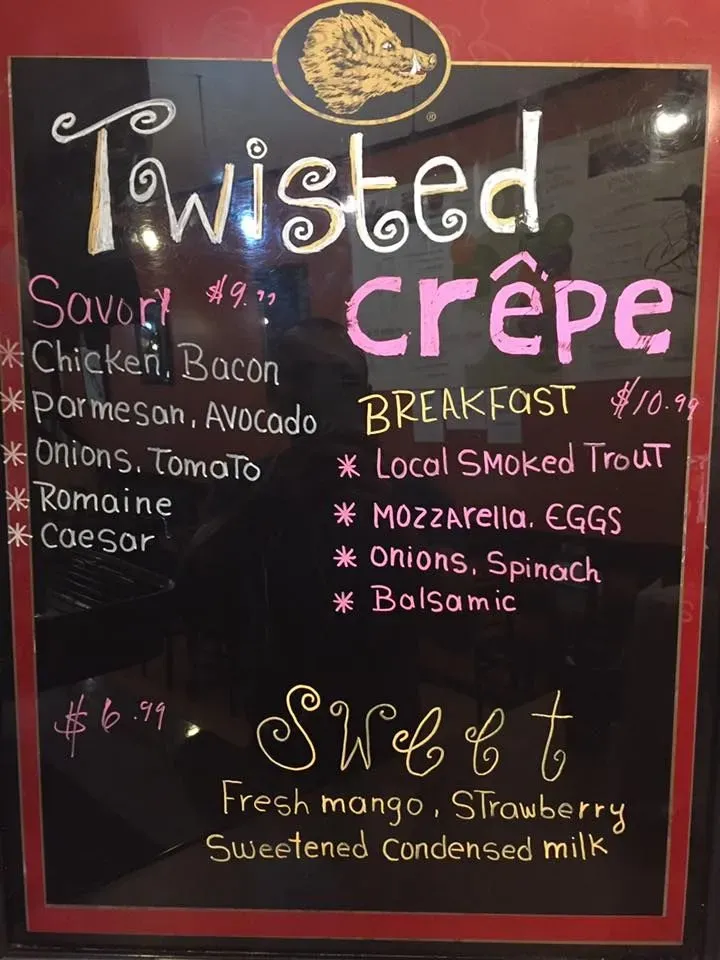 Twisted
crêpe
Savory $9.99
* Chicken, Bacon
* parmesan, Avocado
* Onions, Tomato
* Romaine
* Caesar
BREAKFAST $10.99
* Local Smoked Trout
* Mozzarella, EGGS
* Onions, Spinach
* Balsamic
$6.99
Sweet
Fresh mango, Strawberry
Sweetened Condensed milk